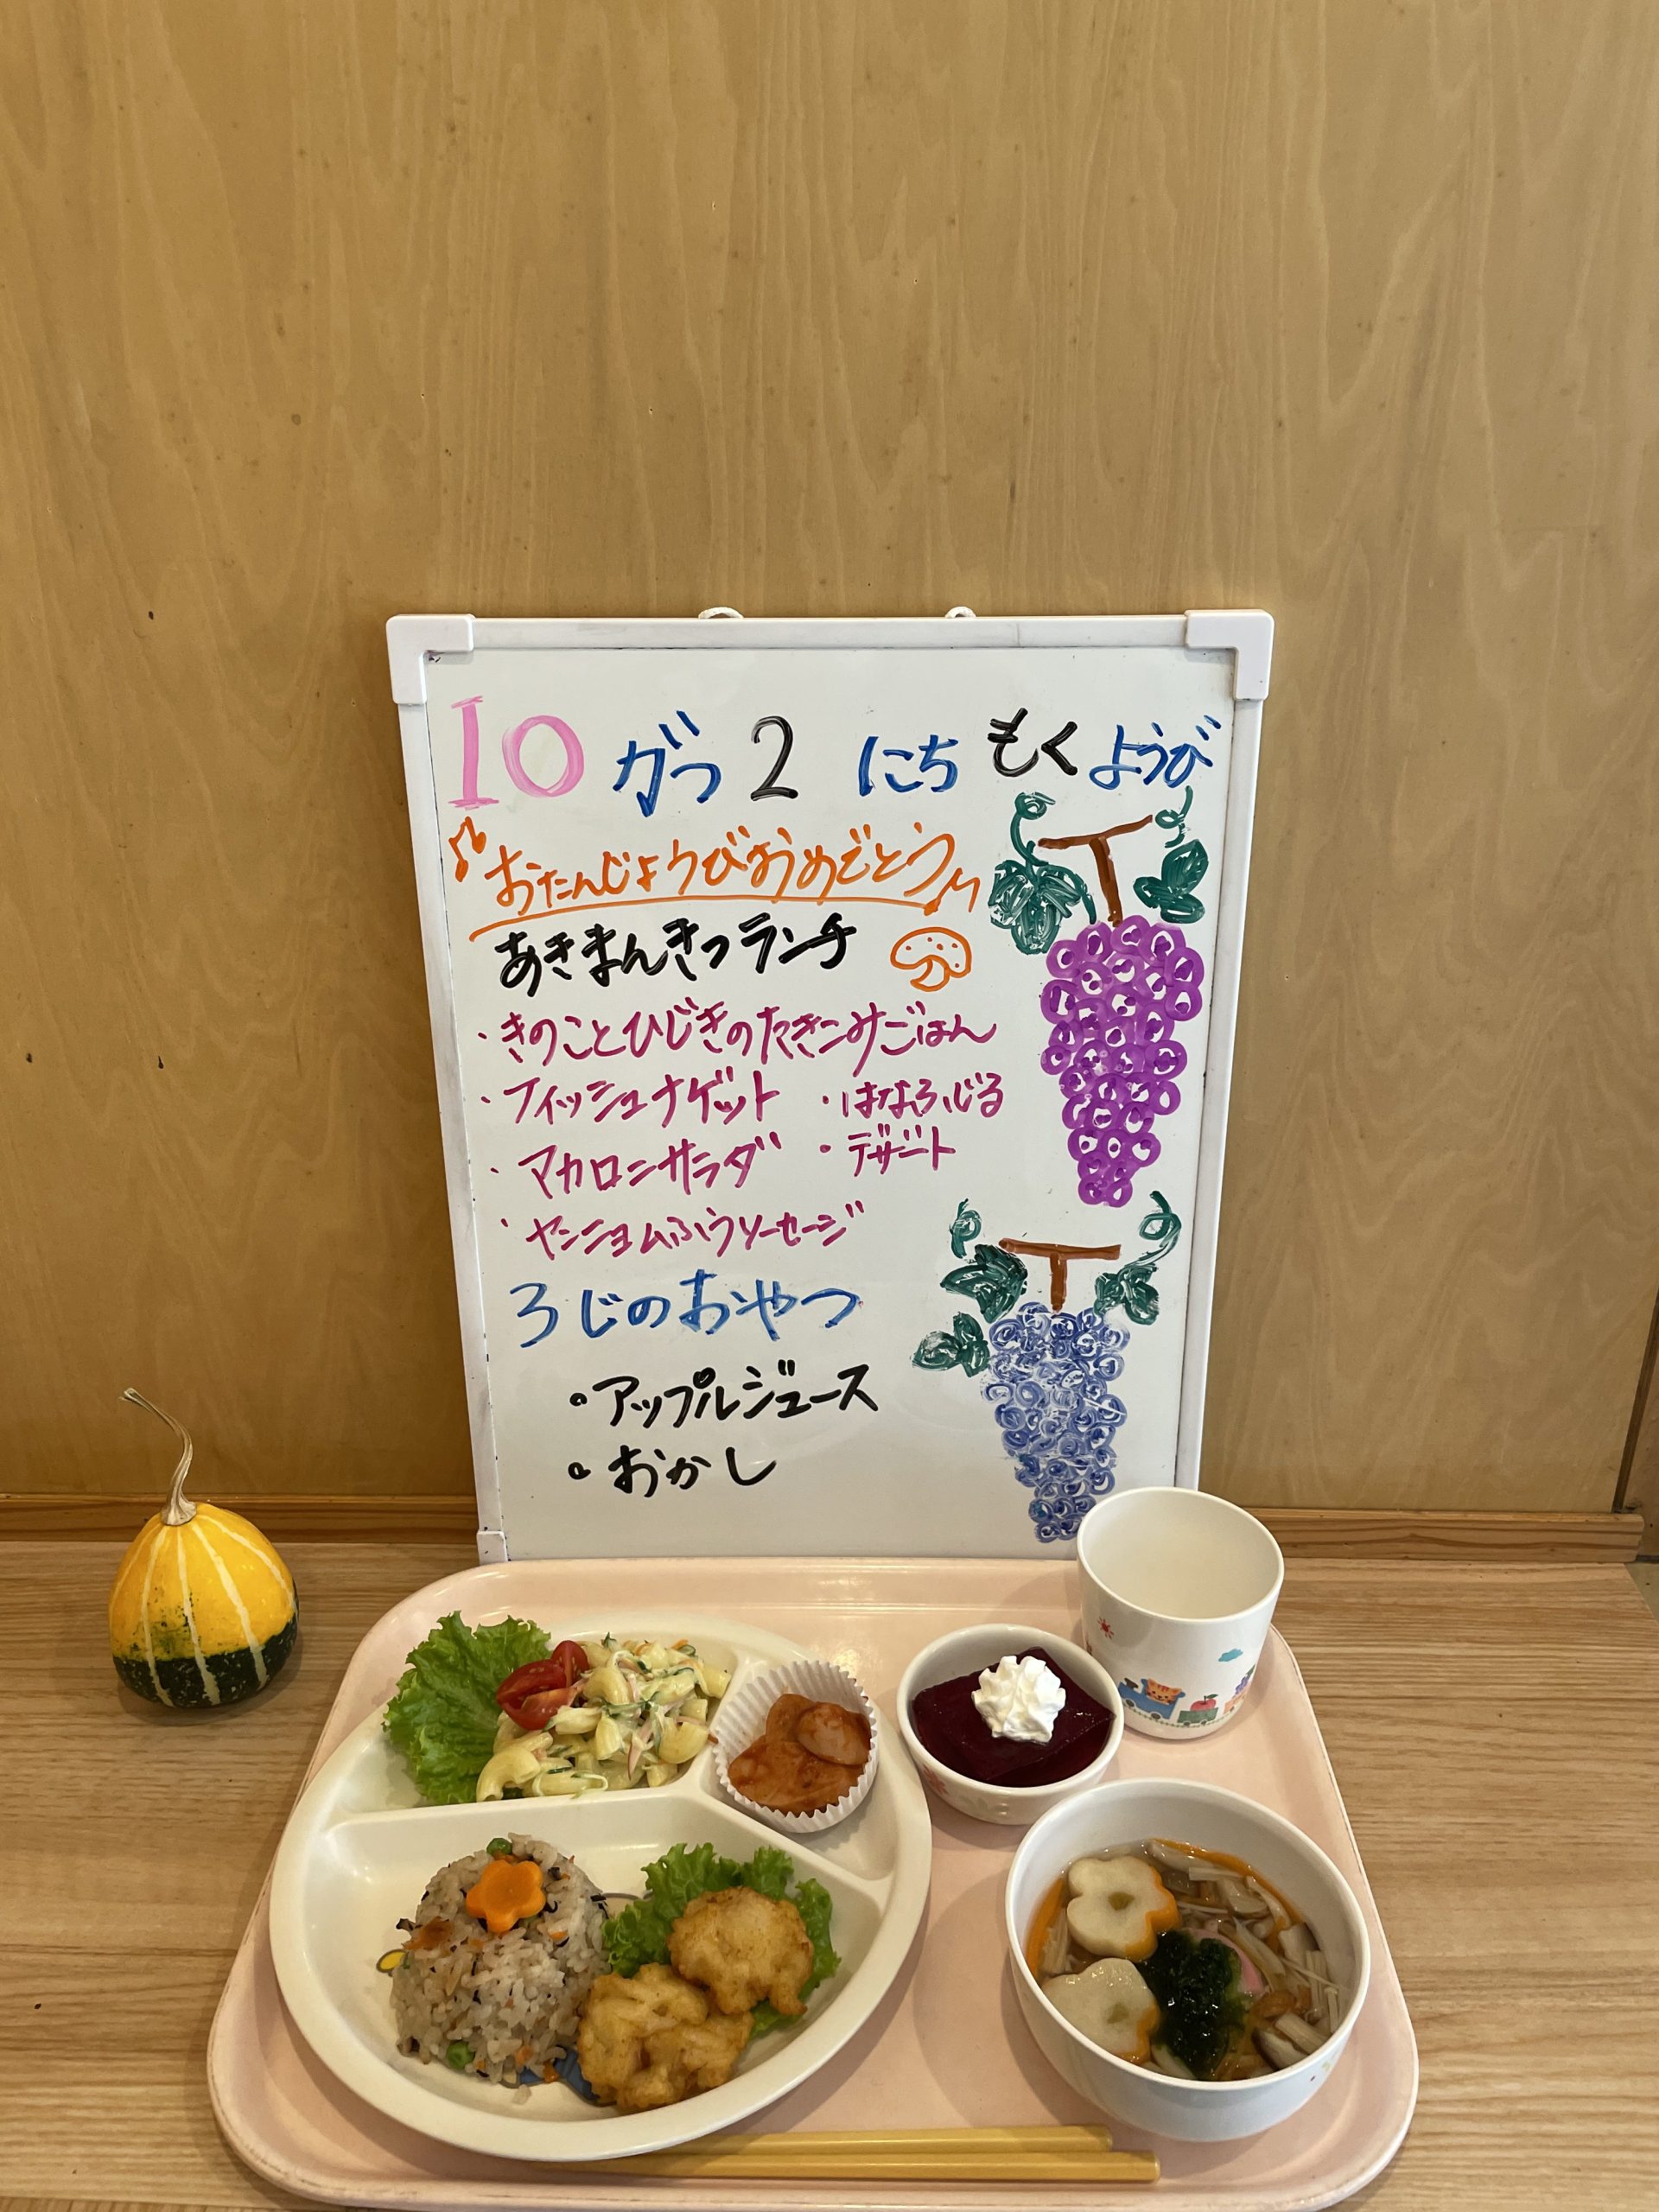 10 がつ 2 にち もくようび
おたんじょうびおめでとう
あきまんきつランチ
・きのことひじきのたきこみごはん
・フィッシュナゲット ・はなふじる
・マカロニサラダ ・デザート
・ヤンニョムふうソーセージ
3じのおやつ
・アップルジュース
・おかし